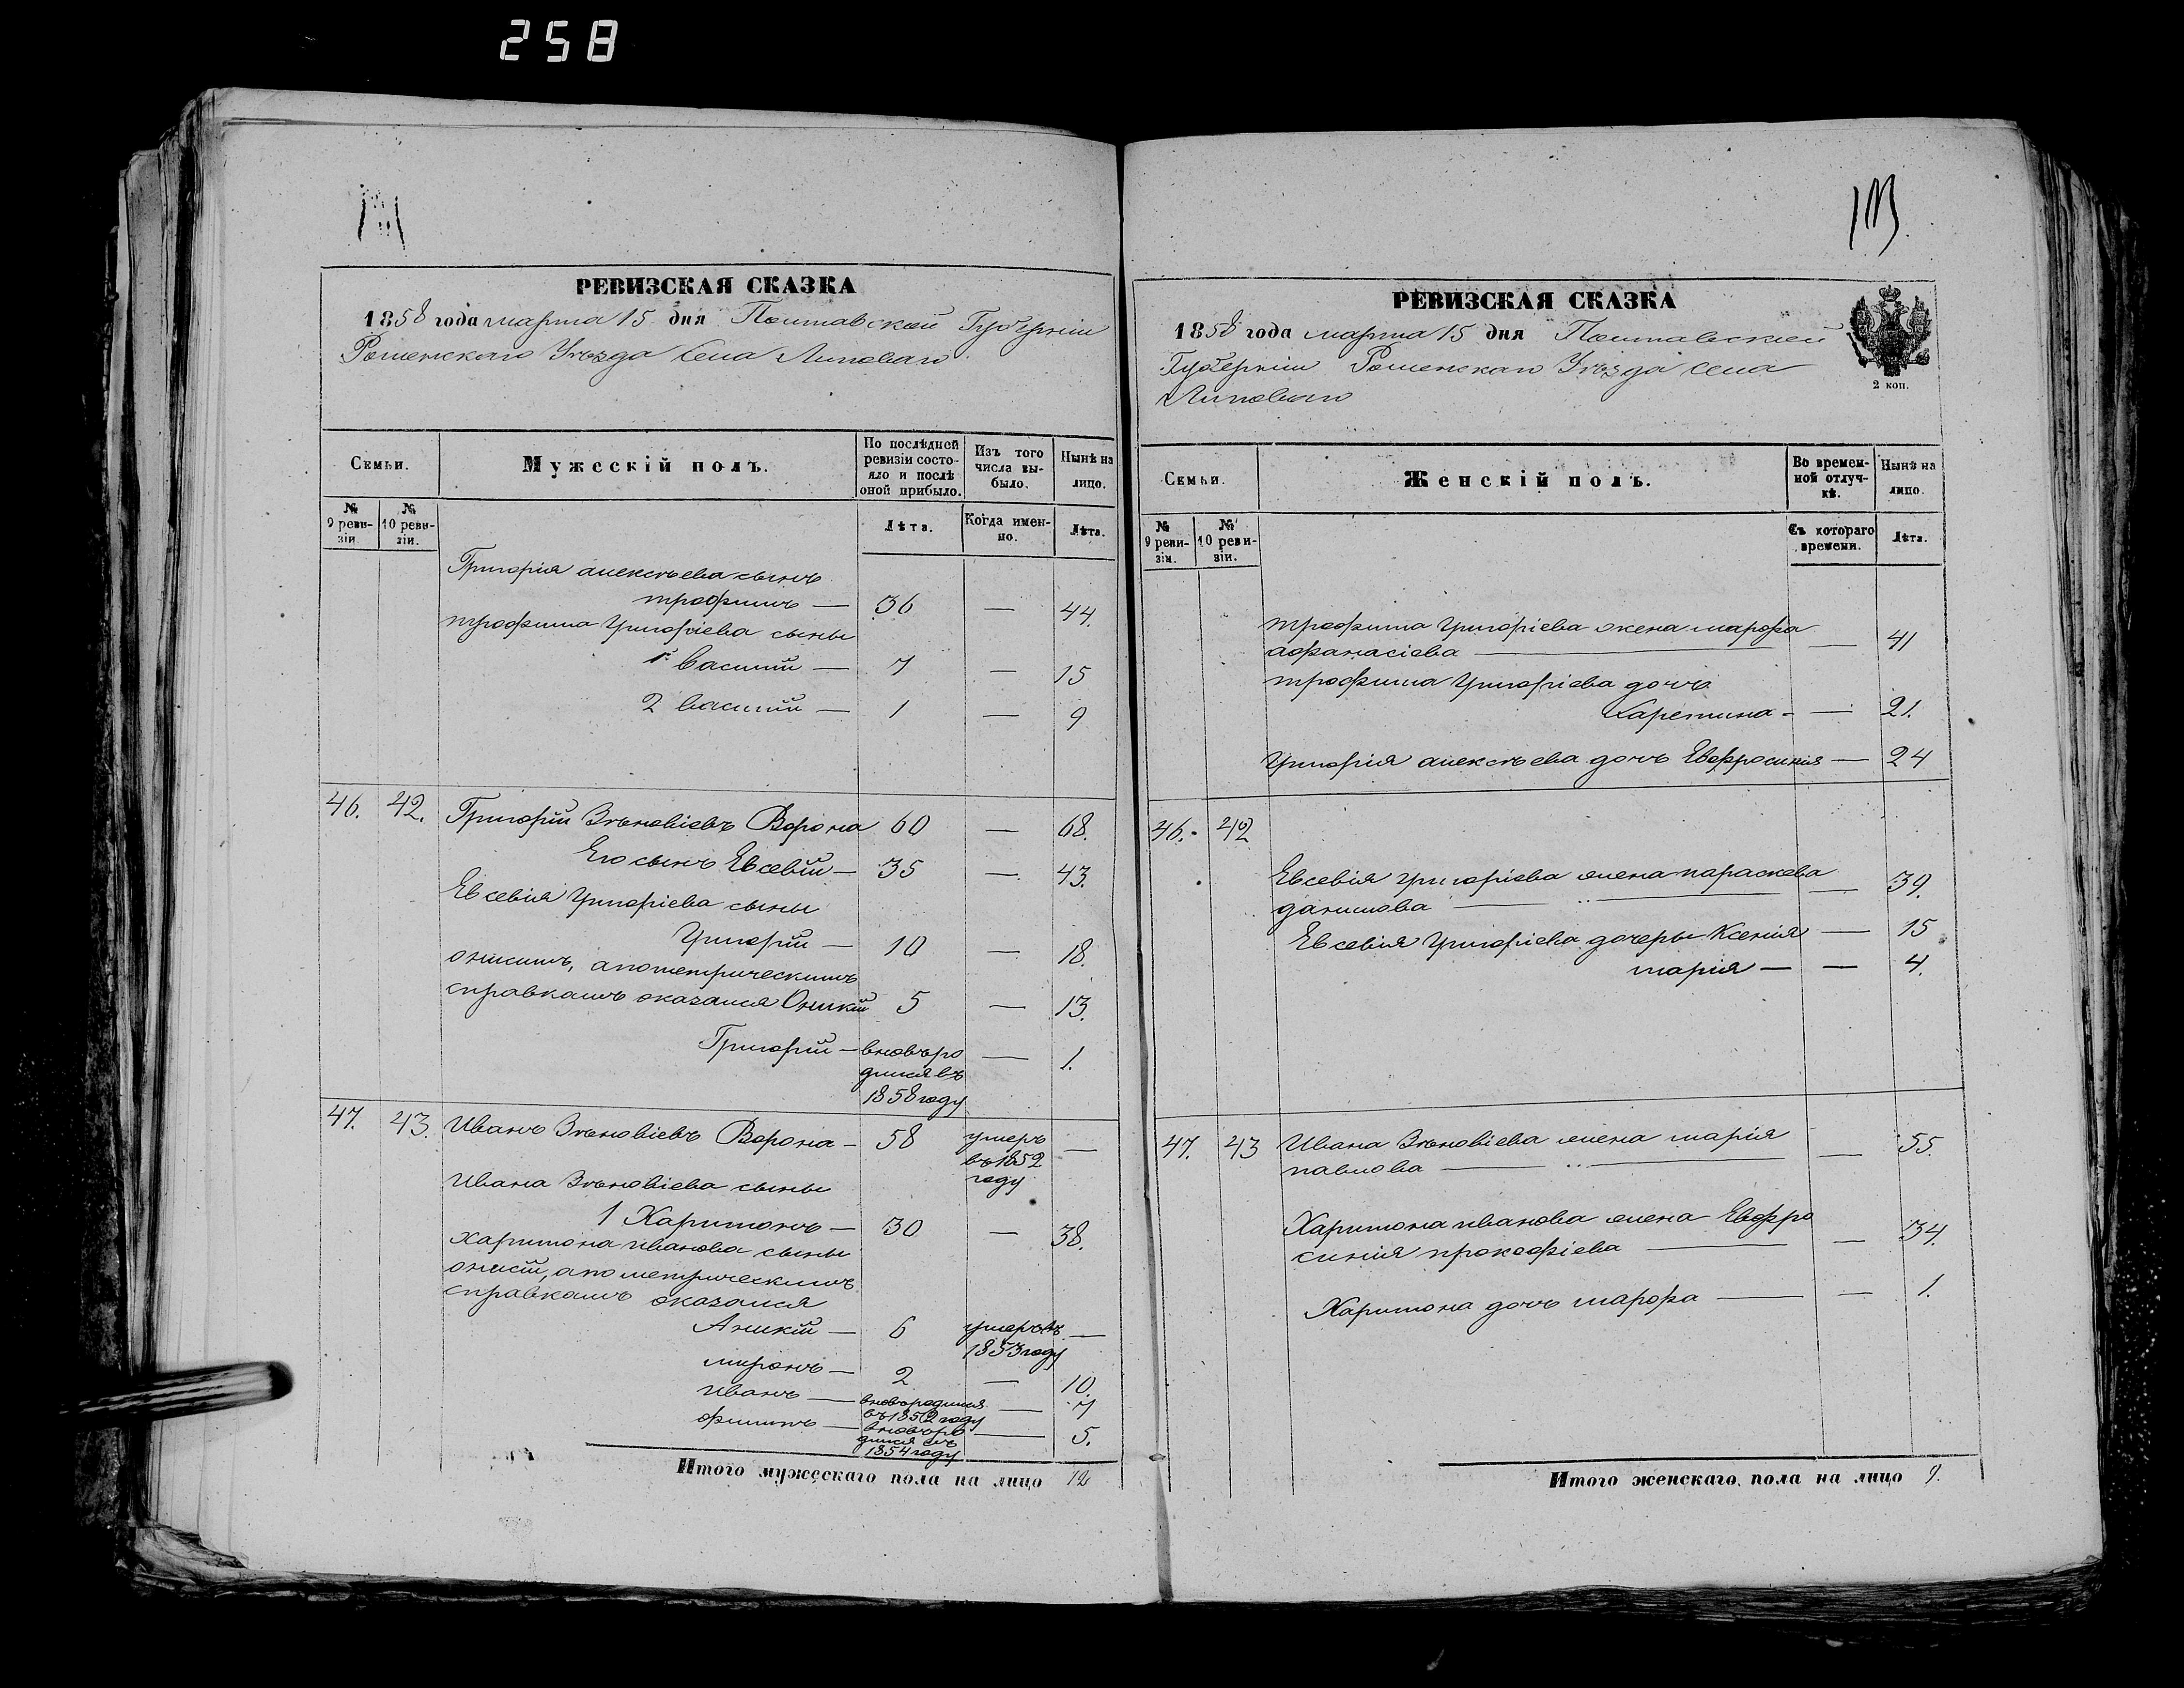 258
РЕВИЗСКАЯ СКАЗКА
1858 года марта 15 дня Полтавской Губерніи
Роменскаго Уѣзда Села Липоваго
Семьи.
Мужескій полъ.
По послѣдней ревизіи состояло и послѣ оной прибыло.
Изъ того числа выбыло.
Нынѣ на лицо.
№ 9 ревизіи
№ 10 ревизіи.
Лѣта.
Когда именно.
Лѣта.
Григорія алексѣева сынъ
трофимъ — 36 — 44.
трофима Григоріева сыны
1й василій — 7 — 15
2 василій — 1 — 9
46. 42. Григорій Зѣновіевъ Ворона 60 — 68.
Его сынъ Евсевій — 35 — 43.
Евсевія Григоріева сыны
Григорій — 10 — 18.
онисимъ, апометрическимъ
справкамъ оказался Оникій 5 — 13.
Григорій — вновьро — 1.
дился въ
1858 году
47. 43. Иванъ Зѣновіевъ Ворона — 58 умеръ —
въ 1852
году
Ивана Зѣновіева сыны
1 Харитонъ — 30 — 38.
харитона иванова сыны
апометрическимъ
справкамъ оказался
Аникій — 6 умеръ въ —
1853 году
миронъ — 2 — 10.
иванъ — вновьродился — 7
въ 1852 году
филипъ — вновьро — 5.
дился въ
1854 году
Итого мужескаго пола на лицо 12
113
РЕВИЗСКАЯ СКАЗКА
1858 года марта 15 дня Полтавской
Губерніи Роменскаго Уѣзда села
Липоваго
2 коп.
Семьи.
Женскій полъ.
Во временной отлучкѣ.
Нынѣ на лицо.
№ 9 ревизіи.
№ 10 ревизіи.
Съ котораго времени.
Лѣта.
трофима Григоріева жена марфа
афанасіева — — 41
трофима Григоріева дочь
— 21.
Григорія алексѣева дочь Евфросинія — 24
46. 42
Евсевія григоріева жена параскева
данилова — — 39.
Евсевія Григоріева дочеры Ксенія — 15
марія — — 4.
47. 43 Ивана Зѣновіева жена марія
павлова — — 55.
Харитона иванова жена Евфро
синія прокофіева — — 34.
Харитона дочь марфа — — 1.
Итого женскаго пола на лицо 9.